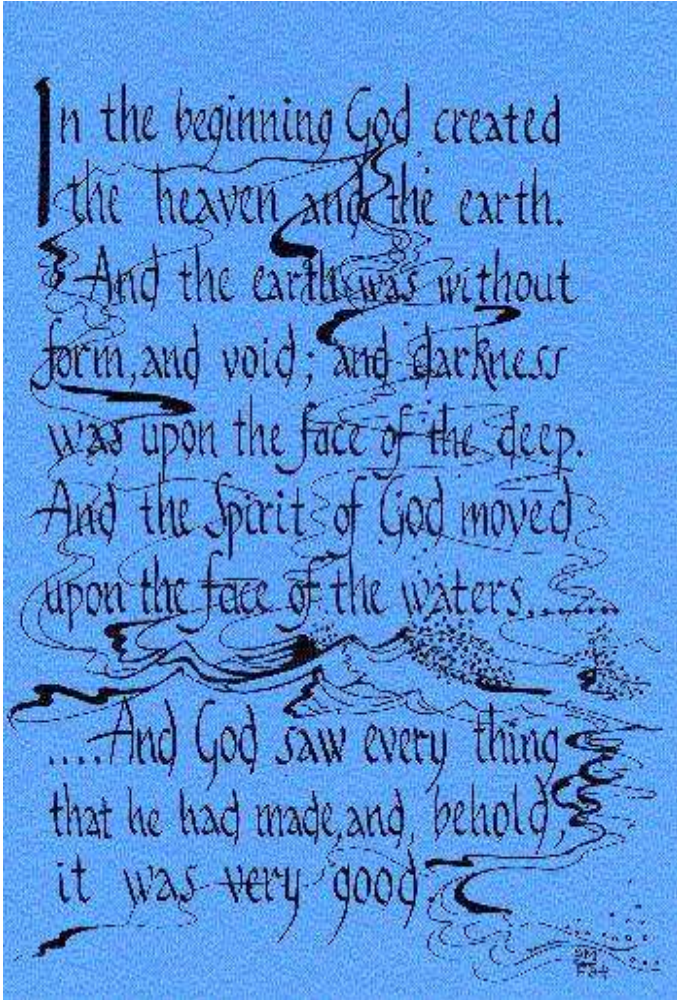 In the beginning God created
the heaven and the earth.
And the earth was without
form, and void; and darkness
was upon the face of the deep.
And the Spirit of God moved
upon the face of the waters.......
....And God saw every thing
that he had made, and, behold,
it was very good.